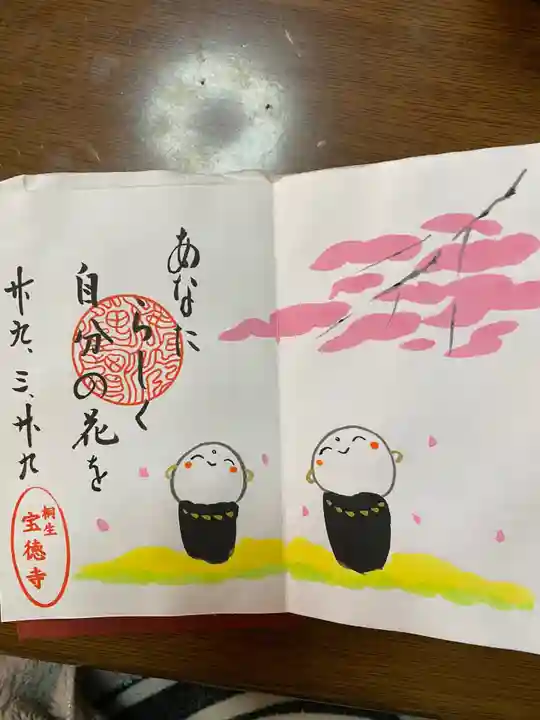 あなた
らしく
自分の花を
廾九、三、廾九
桐生
宝徳寺